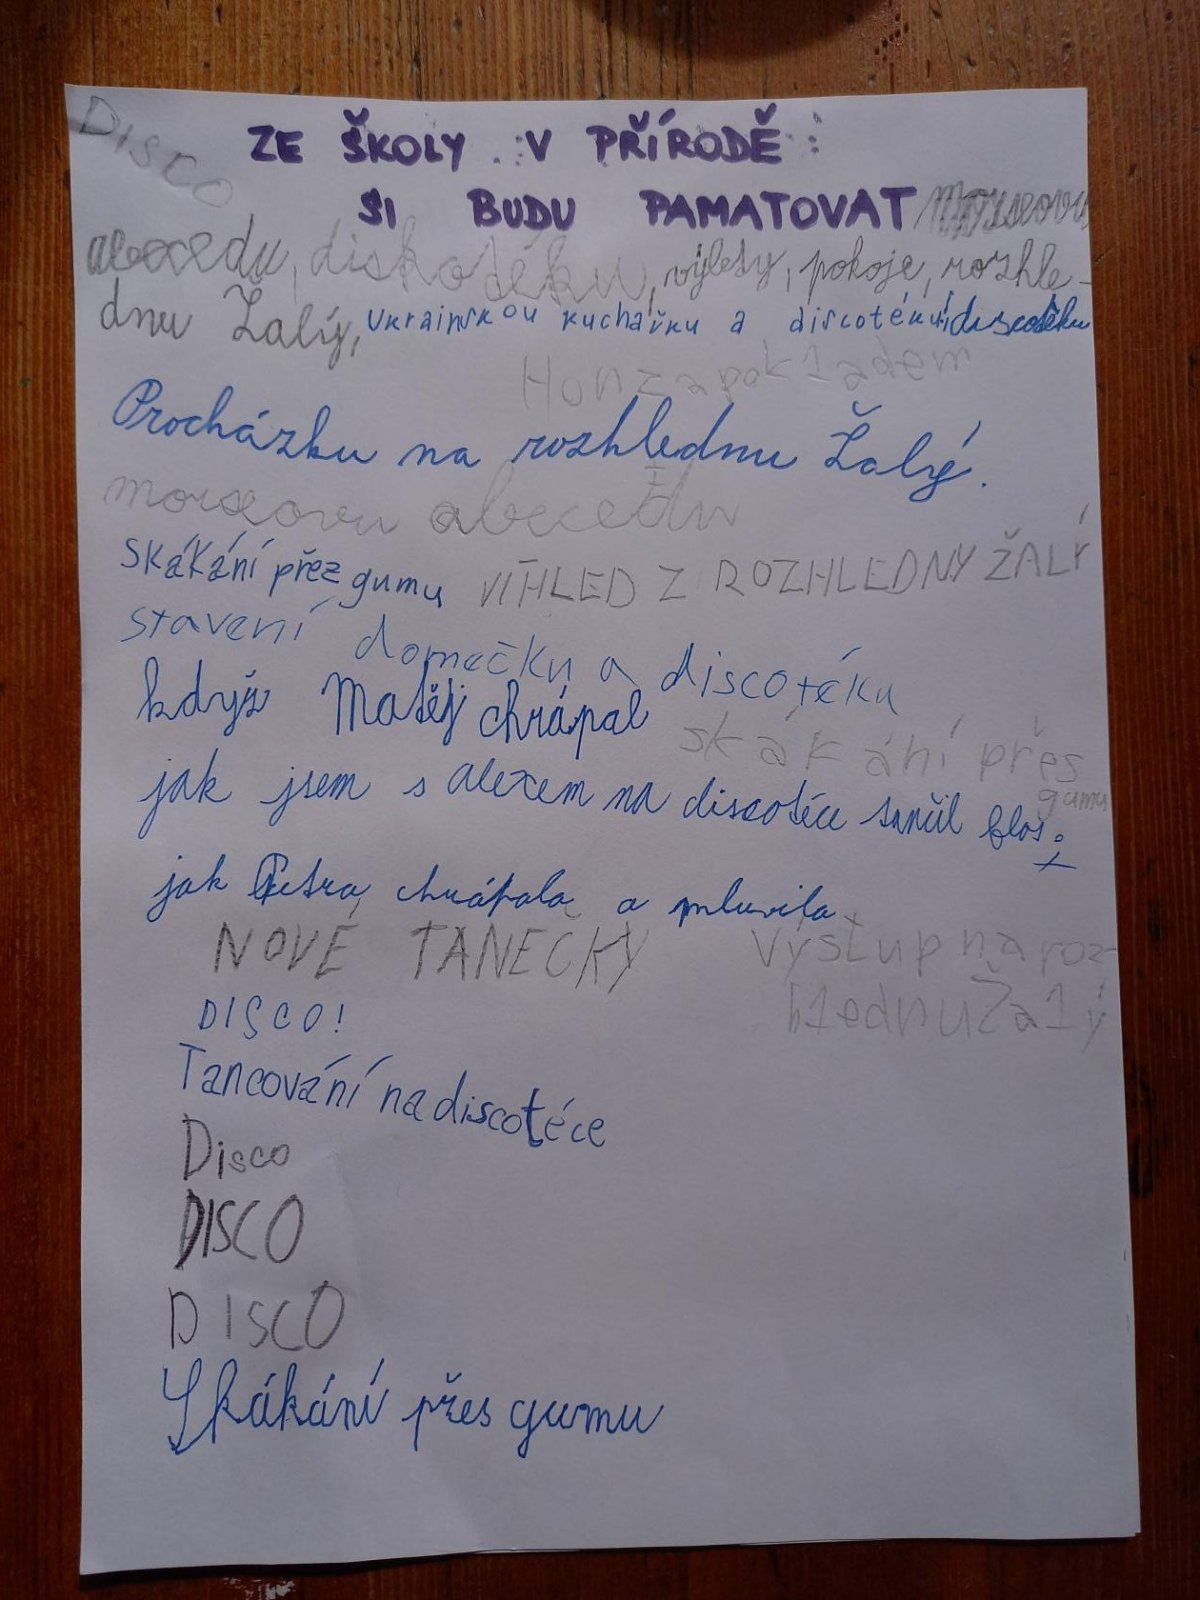 DISCO
ZE ŠKOLY V PŘÍRODĚ
SI BUDU PAMATOVAT morseovu
abecedu, diskotéku, výlety, pokoje, rozhle-
dnu Žalý, ukrainskou kuchařku a discotéku, discotéku
Honzapokladem
Procházku na rozhlednu Žalý.
morseovu abecedu
skákání přez gumu VÍHLED Z ROZHLEDNY ŽALÝ
stavení domečku a discotéku
když Matěj chrápal
skákání přes
gumu
jak jsem s alexem na discotéce tančil
jak Petra chrápala a mluvila
NOVÉ TANEČKY
Výstup na roz-
hlednu Žalý
DISCO!
Tancování na discotéce
Disco
DISCO
DISCO
Skákání přes gumu